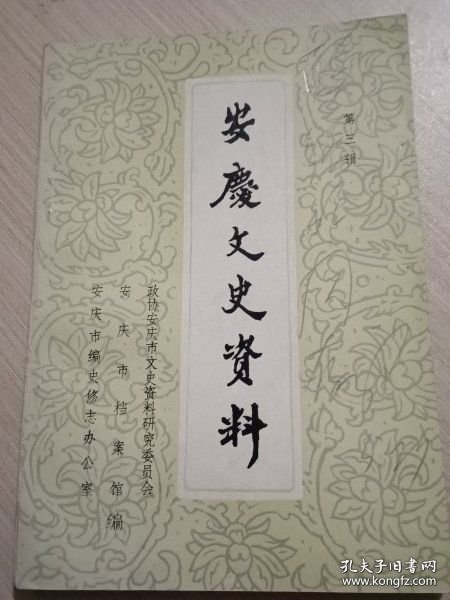 第三辑
安慶文史資料
政协安庆市文史资料研究委员会
安庆市档案馆
安庆市编史修志办公室
编
孔夫子旧书网
www.kongfz.com